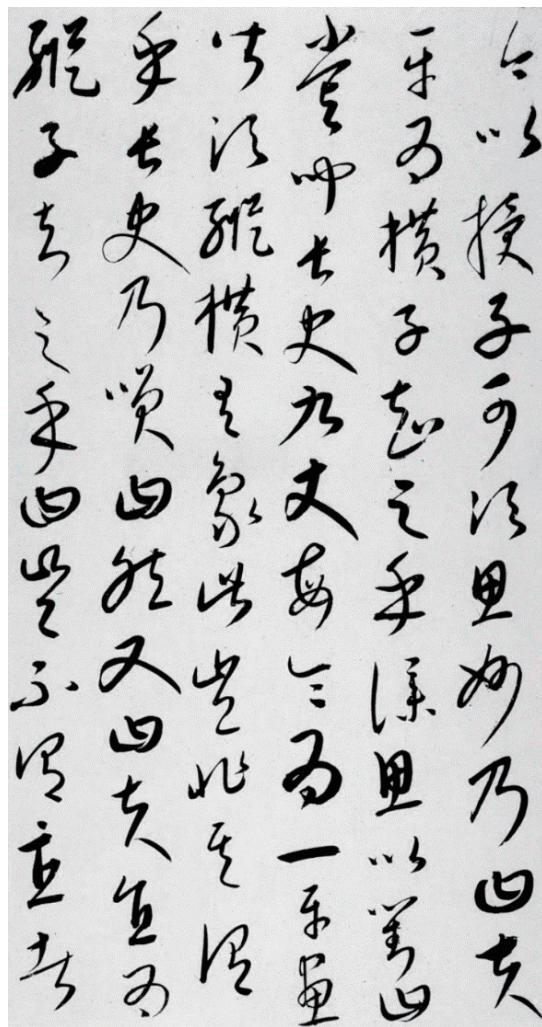 今以授子可須思妙乃曰夫
平為橫子知之乎僕思以對曰
嘗聞長史九丈每令為一平畫
皆須縱橫有象此豈非其謂
乎長史乃咲曰然又曰夫直為
縱子知之乎曰豈不謂直者